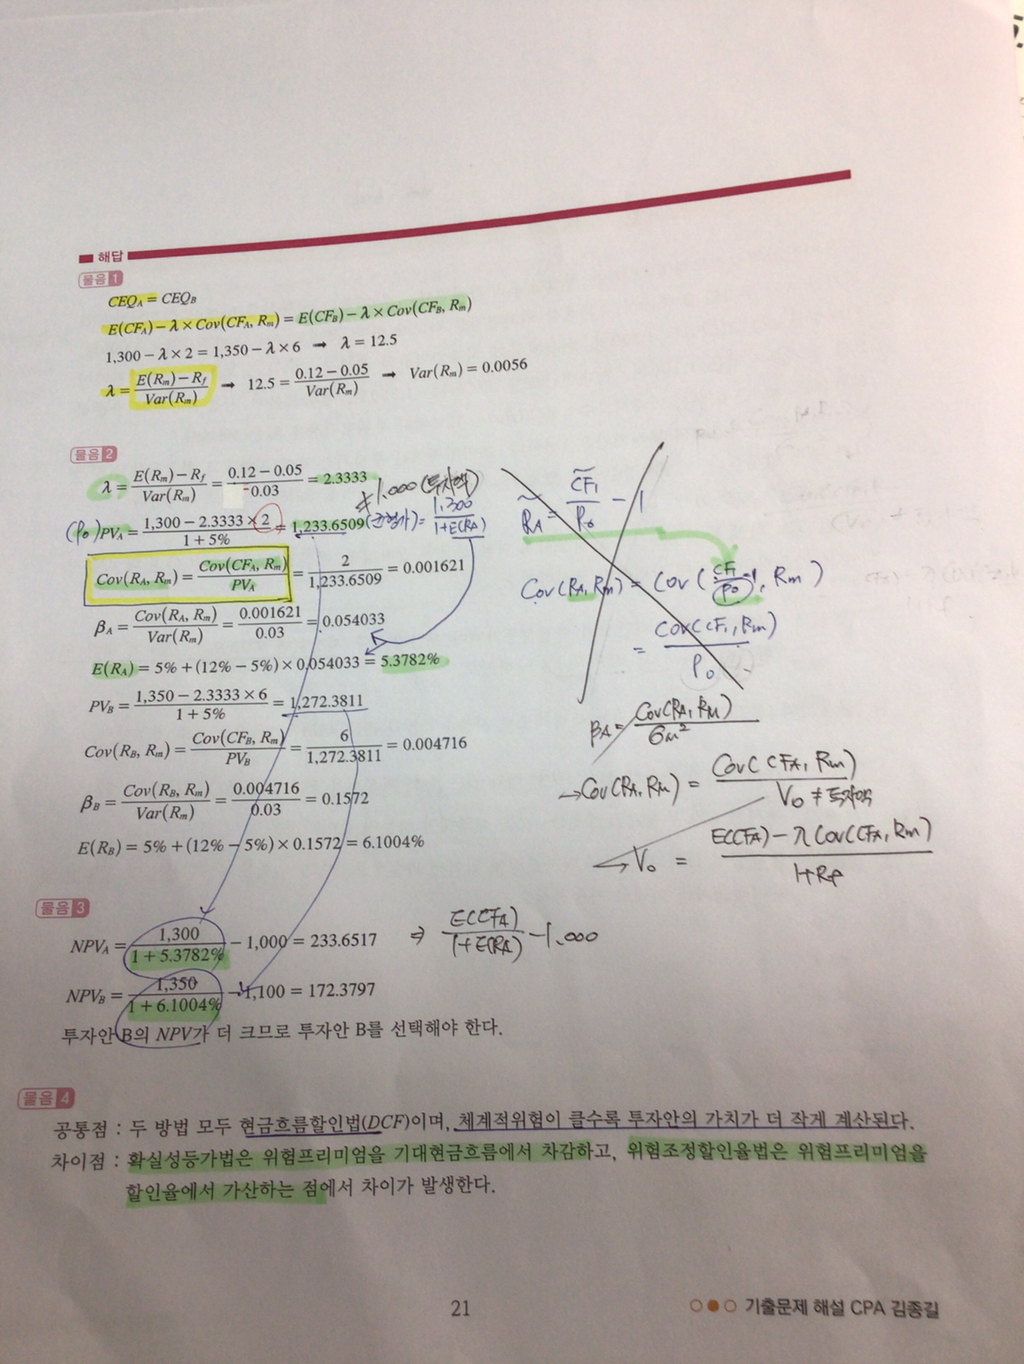 해답
물음 1
CEQ_A = CEQ_B
E(CF_A) − λ × Cov(CF_A, R_m) = E(CF_B) − λ × Cov(CF_B, R_m)
1,300 − λ × 2 = 1,350 − λ × 6 → λ = 12.5
λ = (E(R_m) − R_f)/Var(R_m) → 12.5 = (0.12 − 0.05)/Var(R_m) → Var(R_m) = 0.0056
물음 2
λ = (E(R_m) − R_f)/Var(R_m) = (0.12 − 0.05)/0.03 = 2.3333
≠ 1,000 (투자액)
(P0) PV_A = (1,300 − 2.3333 × 2)/(1 + 5%) = 1,233.6509 (균형가) = 1,300/(1+E(RA))
Cov(R_A, R_m) = Cov(CF_A, R_m)/PV_A = 2/1,233.6509 = 0.001621
β_A = Cov(R_A, R_m)/Var(R_m) = 0.001621/0.03 = 0.054033
E(R_A) = 5% + (12% − 5%) × 0.054033 = 5.3782%
PV_B = (1,350 − 2.3333 × 6)/(1 + 5%) = 1,272.3811
Cov(R_B, R_m) = Cov(CF_B, R_m)/PV_B = 6/1,272.3811 = 0.004716
β_B = Cov(R_B, R_m)/Var(R_m) = 0.004716/0.03 = 0.1572
E(R_B) = 5% + (12% − 5%) × 0.1572 = 6.1004%
R̃A = C̃F1/P0 − 1
Cov(RA, Rm) = Cov(CF1/P0 − 1, Rm)
= Cov(CF1, Rm)/P0
βA = Cov(RA, RM)/σm²
→ Cov(RA, RM) = Cov(CFA, Rm)/V0 ≠ 투자액
→ V0 = (E(CFA) − λ Cov(CFA, Rm))/(1+Rf)
물음 3
NPV_A = 1,300/(1 + 5.3782%) − 1,000 = 233.6517 ⇒ E(CFA)/(1+E(RA)) − 1,000
NPV_B = 1,350/(1 + 6.1004%) − 1,100 = 172.3797
투자안 B의 NPV가 더 크므로 투자안 B를 선택해야 한다.
물음 4
공통점 : 두 방법 모두 현금흐름할인법(DCF)이며, 체계적위험이 클수록 투자안의 가치가 더 작게 계산된다.
차이점 : 확실성등가법은 위험프리미엄을 기대현금흐름에서 차감하고, 위험조정할인율법은 위험프리미엄을
할인율에서 가산하는 점에서 차이가 발생한다.
21
기출문제 해설 CPA 김종길